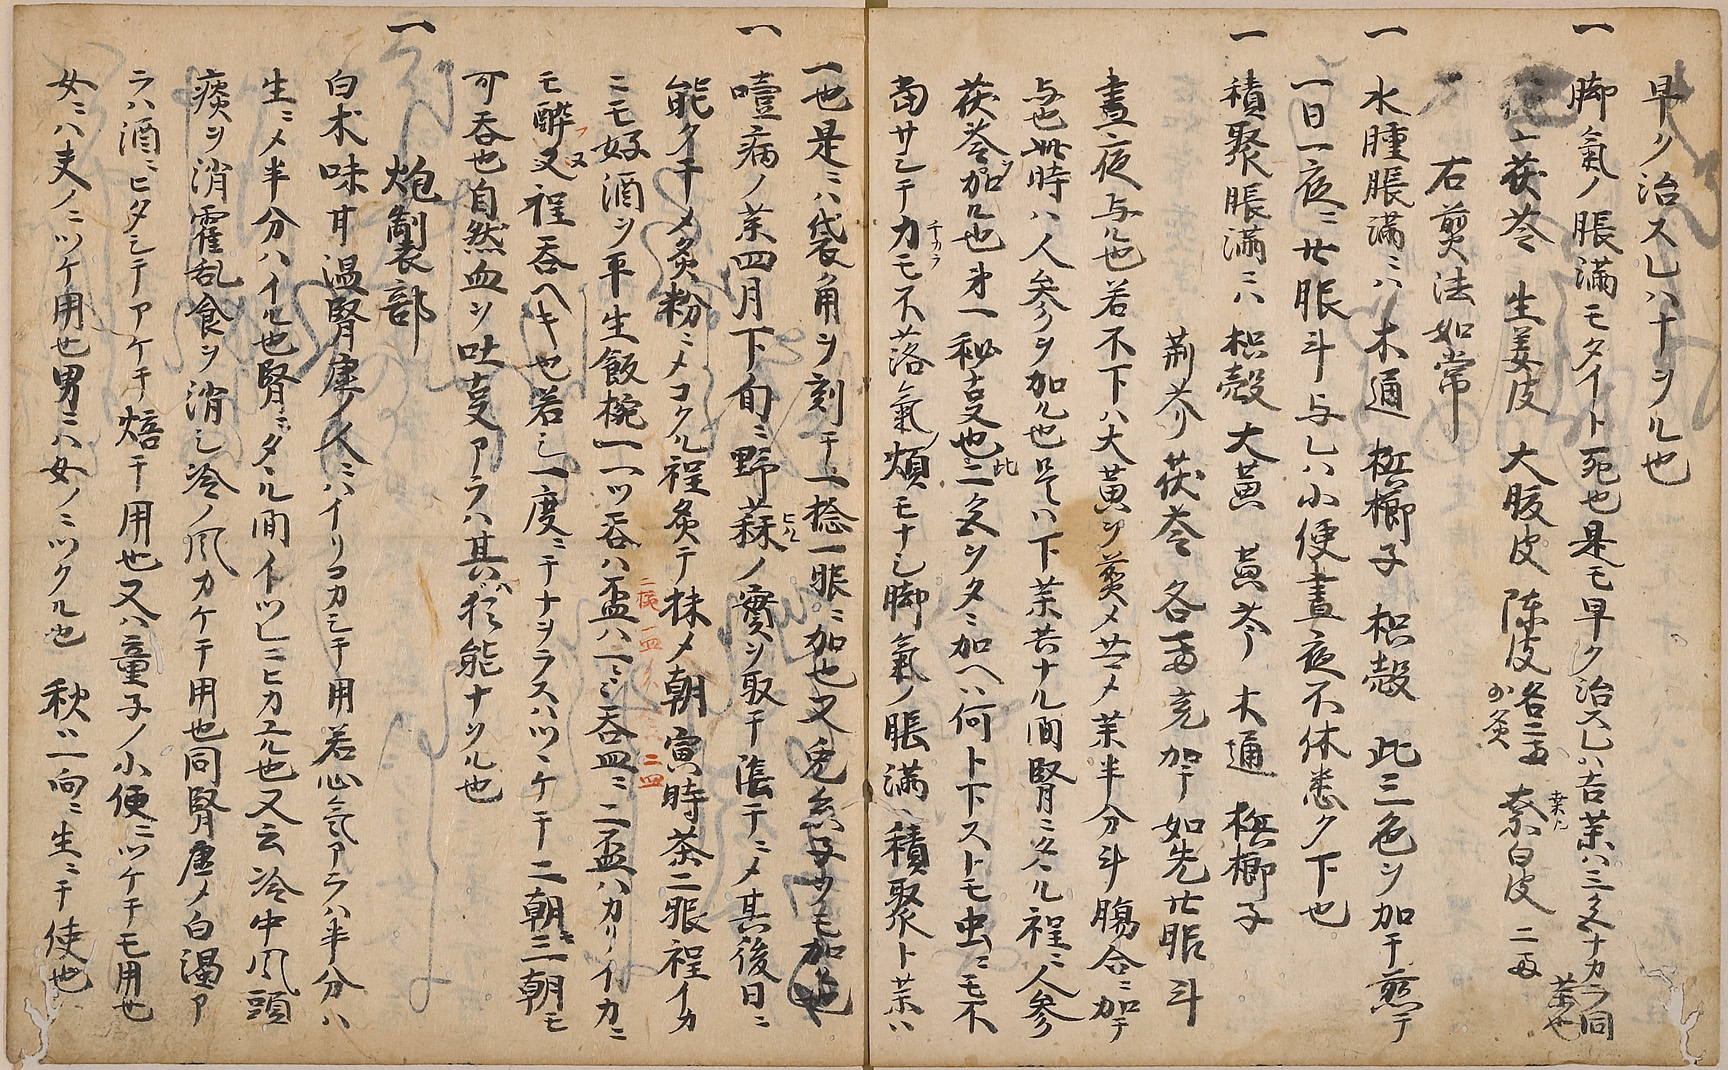 早ク治スレハ十ヲル也
一 脚氣ノ脹滿モタイト死也是モ早ク治スレハ吉薬ハ三色ナカラ同薬也
茯苓 生姜皮 大腹皮 陳皮各二两 少炙 桑白皮 二两
右煎法如常
一 水腫脹滿ニハ木通 梹榔子 枳殻 此三色ヲ加テ煎テ
一日一夜ニ廿服斗与レハ小便晝夜不休悉ク下也
一 積聚脹滿ニハ枳殻 大黄 黄芩 木通 梹榔子
荊芥 茯苓 各一两充加テ如先廿服斗
晝夜与ル也若不下ハ大黄ヲ炙メ廿メ薬半分斗腸合ニ加テ
与也此時ハ人参ヲ加ル也是ハ下薬共ナル間腎ニ冬ル程ニ人参
茯苓加ル也才一秘吉事也此二色ヲタニ加ヘハ何ト下ストモ虫ニモ不
當サシテ力モ不落氣煩モナシ脚氣ノ脹滿ヘ積聚ト薬ハ
一也是ニハ袋角ヲ刻テ一捻一服ニ加也又兎糸子ヲモ加也
一 噎病ノ薬四月下旬ニ野蒜ノ實ヲ取テ陰干ニメ其後日ニ
能ク干メ炙粉ニメコクル程炙テ抹メ朝寅時茶二服程イカ
ニモ好酒ヲ平生飯椀一一ツ呑ハ盃ハ一ニ呑皿ニ二盃ハカリイカニ
モ醉又程呑ヘキ也若シ一度ニテナヲラスハツヽケテ二朝三朝モ
可呑也自然血ヲ吐事アラハ其ハ猶能ナヲル也
一 炮製部
白朮味甘温腎虚ノ人ニハイリコカシテ用若心氣アラハ半分ハ
生ニメ半分ハイル也腎ニタル間イツレニヒカエル也又云冷中風頭
痰ヲ消霍乱食ヲ消シ冷ノ風カケテ用也同腎虚メ白濁ア
ラハ酒ニヒタシテアケテ焙テ用也又ハ童子ノ小便ニツケテモ用也
女ニハ夫ノニツケ用也男ニハ女ノニツクル也 秋ハ一向ニ生ニテ使也